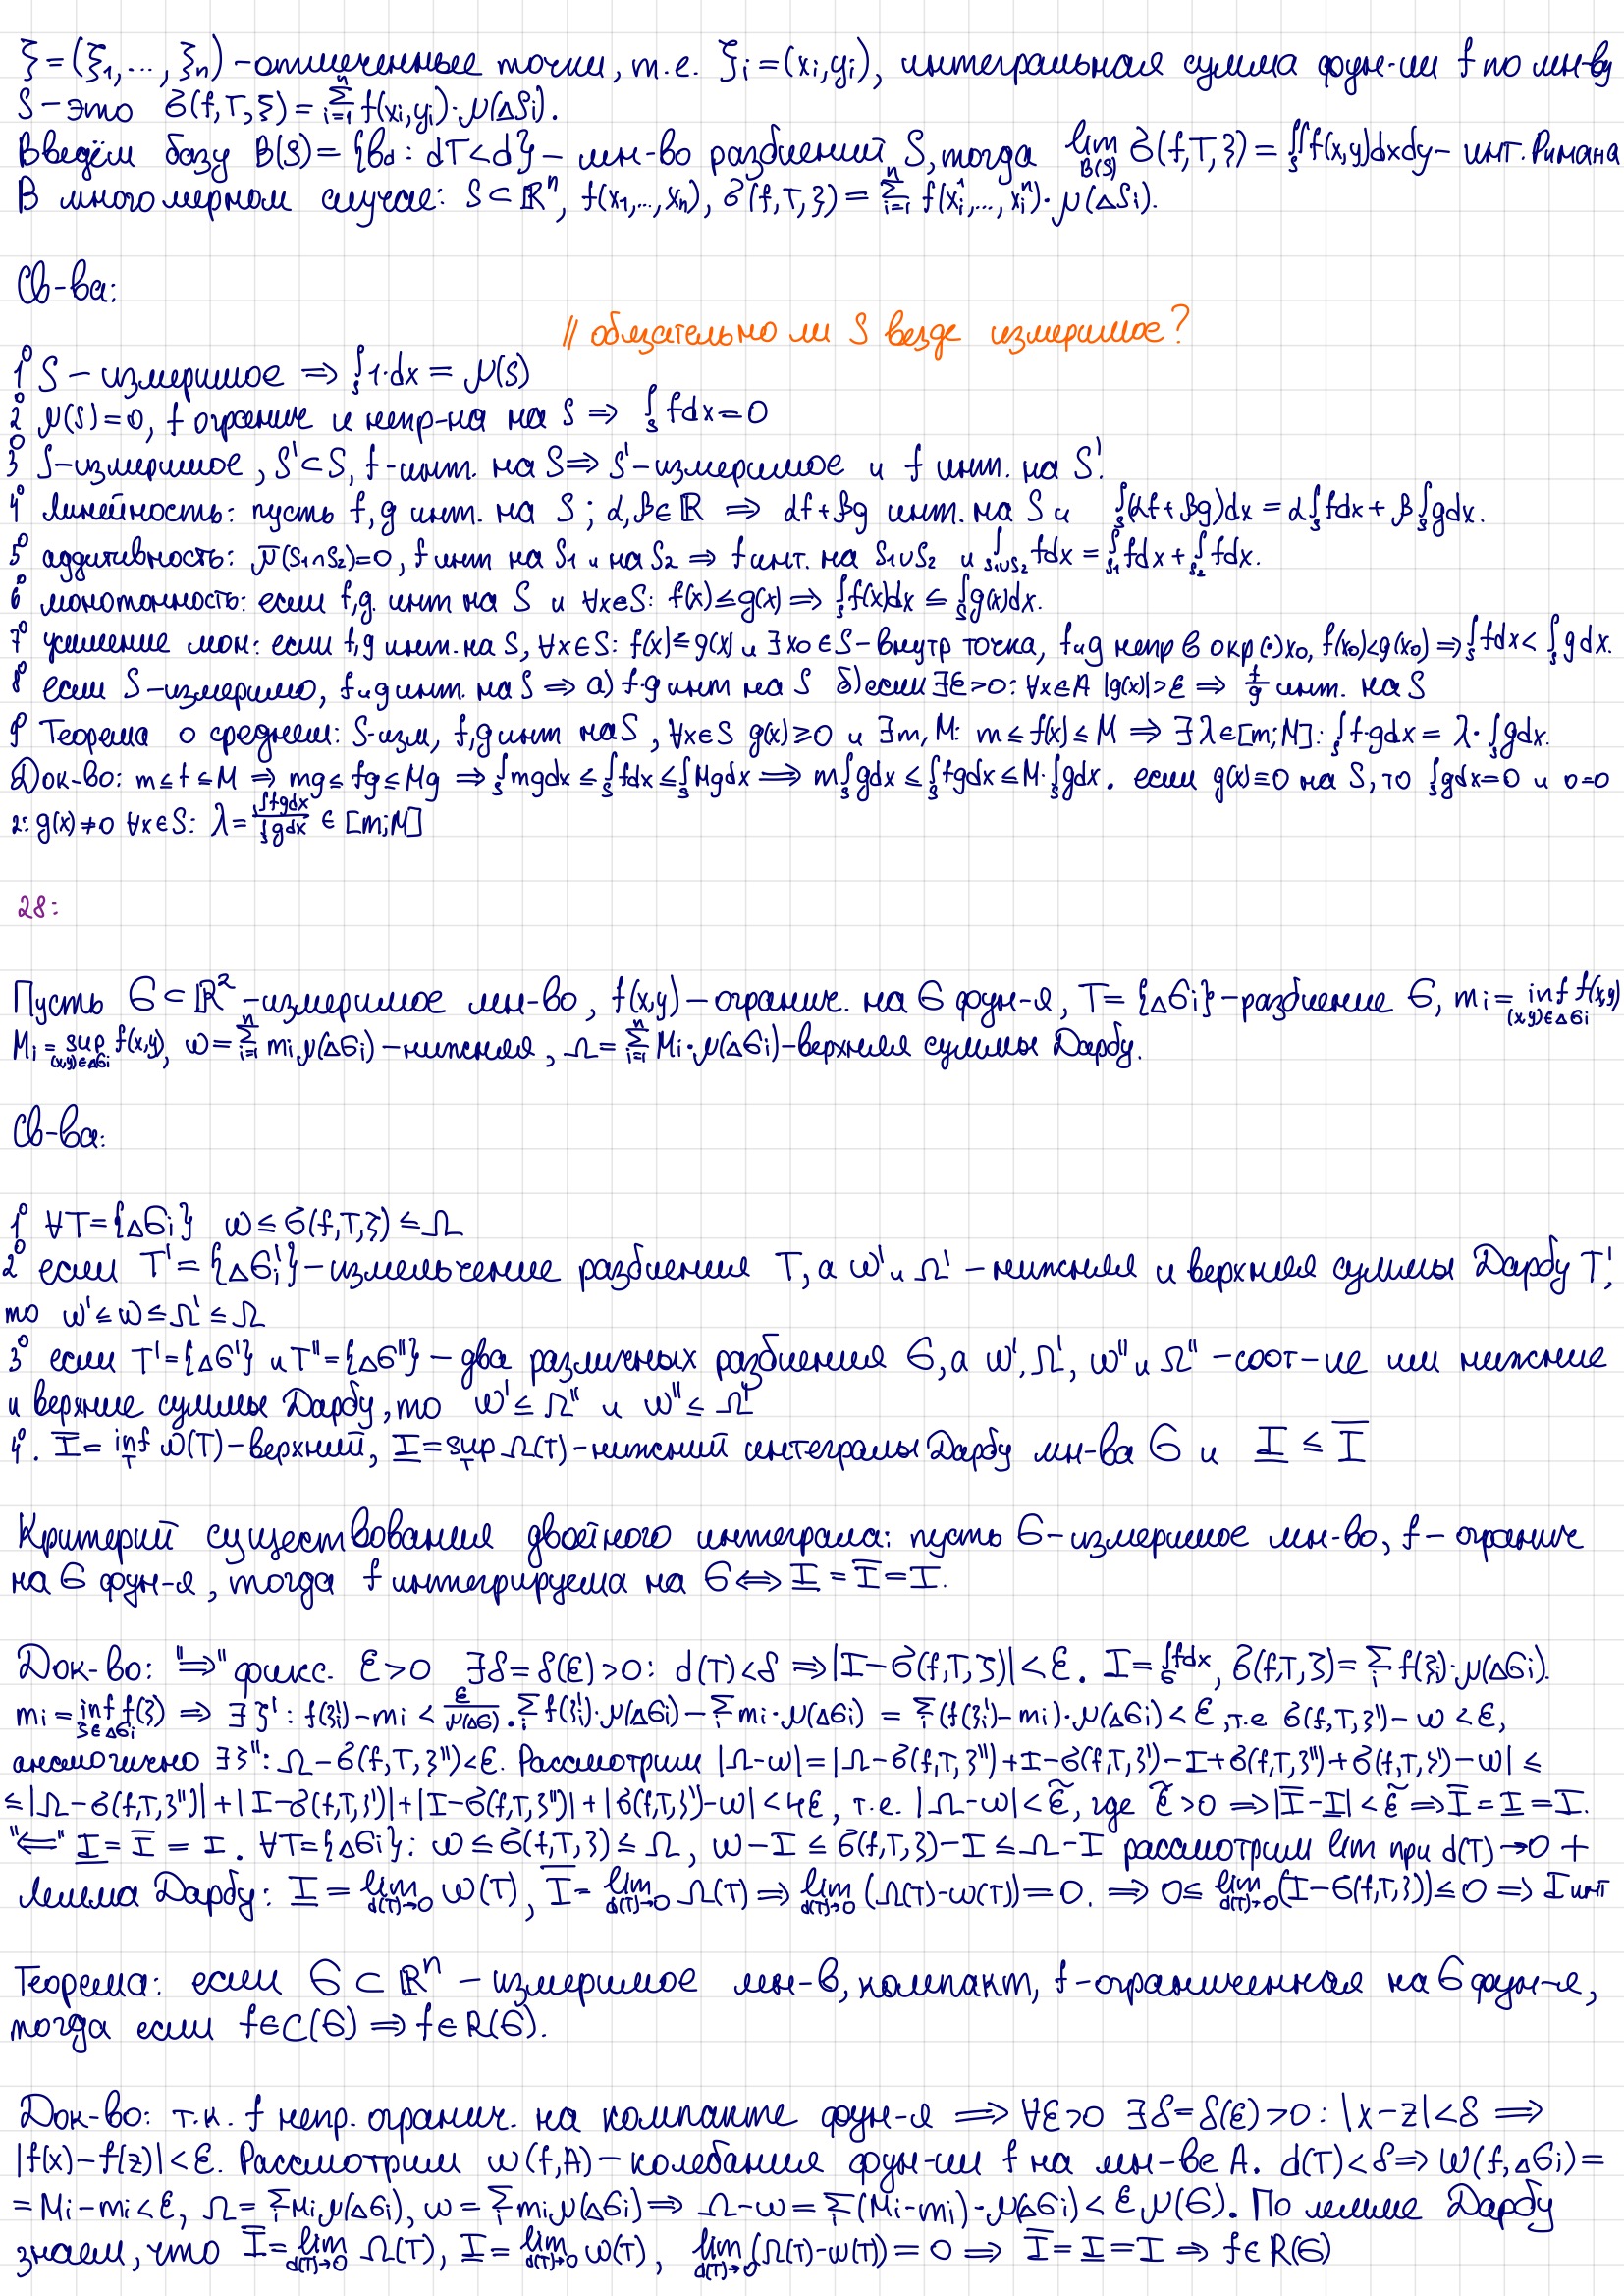 ξ=(ξ₁,…,ξₙ)-отмеченные точки, т.е. ξᵢ=(xᵢ,yᵢ), интегральная сумма фун-ии f по мн-ву
S-это σ(f,T,ξ)=∑ᵢ₌₁ⁿ f(xᵢ,yᵢ)·μ(ΔSᵢ).
Введём базу B(S)={b_d: dT<d}-мн-во разбиений S, тогда lim_{B(S)} σ(f,T,ξ)=∬_S f(x,y)dxdy-инт. Римана
В многомерном случае: S⊂ℝⁿ, f(x₁,…,xₙ), σ(f,T,ξ)=∑ᵢ₌₁ⁿ f(xᵢ¹,…,xᵢⁿ)·μ(ΔSᵢ).
Св-ва:
// обязательно ли S везде измеримое?
1⁰ S-измеримое ⇒ ∫_S 1·dx = μ(S)
2⁰ μ(S)=0, f огранич и непр-на на S ⇒ ∫_S fdx=0
3⁰ S-измеримое, S'⊂S, f-инт. на S ⇒ S'-измеримое и f инт. на S'.
4⁰ линейность: пусть f,g инт. на S; α,β∈ℝ ⇒ αf+βg инт. на S и ∫_S(αf+βg)dx=α∫_S fdx+β∫_S gdx.
5⁰ аддитивность: μ̄(S₁∩S₂)=0, f инт на S₁ и на S₂ ⇒ f инт. на S₁∪S₂ и ∫_{S₁∪S₂} fdx=∫_{S₁} fdx+∫_{S₂} fdx.
6⁰ монотонность: если f,g. инт на S и ∀x∈S: f(x)≤g(x) ⇒ ∫_S f(x)dx ≤ ∫_S g(x)dx.
7⁰ усиление мон: если f,g инт. на S, ∀x∈S: f(x)≤g(x) и ∃x₀∈S-внутр точка, f и g непр в окр(·)x₀, f(x₀)<g(x₀) ⇒ ∫_S fdx<∫_S gdx.
8⁰ если S-измеримо, f и g инт. на S ⇒ а) f·g инт на S б) если ∃ε>0: ∀x∈A |g(x)|>ε ⇒ f/g инт. на S
9⁰ Теорема о среднем: S-изм, f,g инт на S, ∀x∈S g(x)≥0 и ∃m,M: m≤f(x)≤M ⇒ ∃λ∈[m;M]: ∫_S f·gdx=λ·∫_S gdx.
Док-во: m≤f≤M ⇒ mg≤fg≤Mg ⇒ ∫_S mgdx≤∫_S fdx≤∫_S Mgdx ⇒ m∫_S gdx≤∫_S fgdx≤M·∫_S gdx. если g(x)≡0 на S, то ∫_S gdx=0 и 0=0
2: g(x)≠0 ∀x∈S: λ=∫fgdx/∫_S gdx ∈ [m;M]
28:
Пусть G⊂ℝ²-измеримое мн-во, f(x,y)-огранич. на G фун-я, T={ΔGᵢ}-разбиение G, mᵢ=inf_{(x,y)∈ΔGᵢ} f(x,y)
Mᵢ=sup_{(x,y)∈ΔGᵢ} f(x,y), ω=∑ᵢ₌₁ⁿ mᵢμ(ΔGᵢ)-нижняя, Ω=∑ᵢ₌₁ⁿ Mᵢ·μ(ΔGᵢ)-верхняя суммы Дарбу.
Св-ва:
1⁰ ∀T={ΔGᵢ} ω≤σ(f,T,ξ)≤Ω
2⁰ если T'={ΔGᵢ'}-измельчение разбиения T, а ω' и Ω'-нижняя и верхняя суммы Дарбу T',
то ω'≤ω≤Ω'≤Ω
3⁰ если T'={ΔG'} и T''={ΔG''}-два различных разбиения G, а ω',Ω', ω'' и Ω''-соот-ие им нижние
и верхние суммы Дарбу, то ω'≤Ω'' и ω''≤Ω'
4⁰. Ī=inf_T ω(T)-верхний, I̲=sup_T Ω(T)-нижний интегралы Дарбу мн-ва G и I̲≤Ī
Критерий существования двойного интеграла: пусть G-измеримое мн-во, f-огранич
на G фун-я, тогда f интегрируема на G⟺I̲=Ī=I.
Док-во: "⇒" фикс. ε>0 ∃δ=δ(ε)>0: d(T)<δ ⇒|I-σ(f,T,ξ)|<ε. I=∫_G fdx, σ(f,T,ξ)=∑ᵢ f(ξᵢ)·μ(ΔGᵢ).
mᵢ=inf_{ξ∈ΔGᵢ} f(ξ) ⇒ ∃ξ': f(ξᵢ')-mᵢ<ε/μ(ΔG). ∑ᵢ f(ξᵢ')·μ(ΔGᵢ)-∑ᵢ mᵢ·μ(ΔGᵢ)=∑ᵢ(f(ξᵢ')-mᵢ)·μ(ΔGᵢ)<ε, т.е σ(f,T,ξ')-ω<ε,
аналогично ∃ξ'': Ω-σ(f,T,ξ'')<ε. Рассмотрим |Ω-ω|=|Ω-σ(f,T,ξ'')+I-σ(f,T,ξ')-I+σ(f,T,ξ'')+σ(f,T,ξ')-ω|≤
≤|Ω-σ(f,T,ξ'')|+|I-σ(f,T,ξ')|+|I-σ(f,T,ξ'')|+|σ(f,T,ξ')-ω|<4ε, т.е. |Ω-ω|<ε̃, где ε̃>0 ⇒|Ī-I̲|<ε̃⇒Ī=I̲=I.
"⇐" I̲=Ī=I. ∀T={ΔGᵢ}: ω≤σ(f,T,ξ)≤Ω, ω-I≤σ(f,T,ξ)-I≤Ω-I рассмотрим lim при d(T)→0 +
лемма Дарбу: I̲=lim_{d(T)→0} ω(T), Ī=lim_{d(T)→0} Ω(T) ⇒ lim_{d(T)→0}(Ω(T)-ω(T))=0. ⇒ 0≤lim_{d(T)→0}(I-σ(f,T,ξ))≤0 ⇒ I инт
Теорема: если G⊂ℝⁿ-измеримое мн-в, компакт, f-ограниченная на G фун-я,
тогда если f∈C(G) ⇒ f∈R(G).
Док-во: т.к. f непр. огранич. на компакте фун-я ⇒ ∀ε>0 ∃δ=δ(ε)>0: |x-z|<δ ⇒
|f(x)-f(z)|<ε. Рассмотрим ω(f,A)-колебания фун-ии f на мн-ве A. d(T)<δ⇒ω(f,ΔGᵢ)=
=Mᵢ-mᵢ<ε, Ω=∑ᵢMᵢμ(ΔGᵢ), ω=∑ᵢmᵢμ(ΔGᵢ)⇒ Ω-ω=∑ᵢ(Mᵢ-mᵢ)·μ(ΔGᵢ)<εμ(G). По лемме Дарбу
знаем, что Ī=lim_{d(T)→0} Ω(T), I̲=lim_{d(T)→0} ω(T), lim_{d(T)→0}(Ω(T)-ω(T))=0 ⇒ Ī=I̲=I ⇒ f∈R(G)